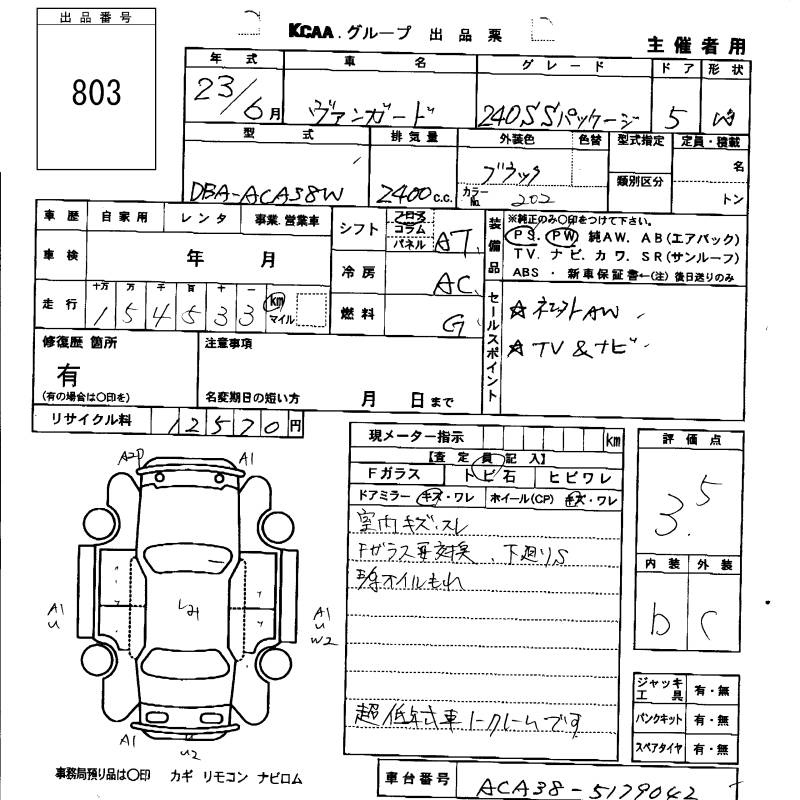 出品番号
803
KCAA.グループ 出品票
主催者用
年式 車名 グレード ドア 形状
23/6月 ヴァンガード 240SSパッケージ 5 W
型式 排気量 外装色 色替 型式指定 定員・積載
DBA-ACA38W 2400c.c. ブラック 類別区分 名
カラーNo. 202 トン
車歴 自家用 レンタ 事業.営業車
シフト フロア コラム パネル AT
装備品 ※純正のみ〇印をつけて下さい。
PS. PW 純AW. AB(エアバック)
TV. ナビ. カワ. SR(サンルーフ)
ABS ・ 新車保証書←(注) 後日送りのみ
車検 年 月
冷房 AC
走行 十万 万 千 百 十 一
154533 km マイル
燃料 G
セールスポイント
☆ネオトAW
☆TV&ナビ
修復歴 箇所
有
(有の場合は〇印を)
注意事項
名変期日の短い方 月 日まで
リサイクル料 12570円
現メーター指示 km
【査定員記入】
Fガラス トビ石 ヒビワレ
ドアミラー キズ・ワレ ホイール(CP) キズ・ワレ
室内キズ.スレ
Fガラス要交換、下廻りS
オイルもれ
超低年式車ノークレームです
評価点
3.5
内装 外装
b C
ジャッキ工具 有・無
パンクキット 有・無
スペアタイヤ 有・無
A2P A1
A1
U
A1
U
W2
A1
U2
事務局預り品は〇印 カギ リモコン ナビロム
車台番号 ACA38-5179042